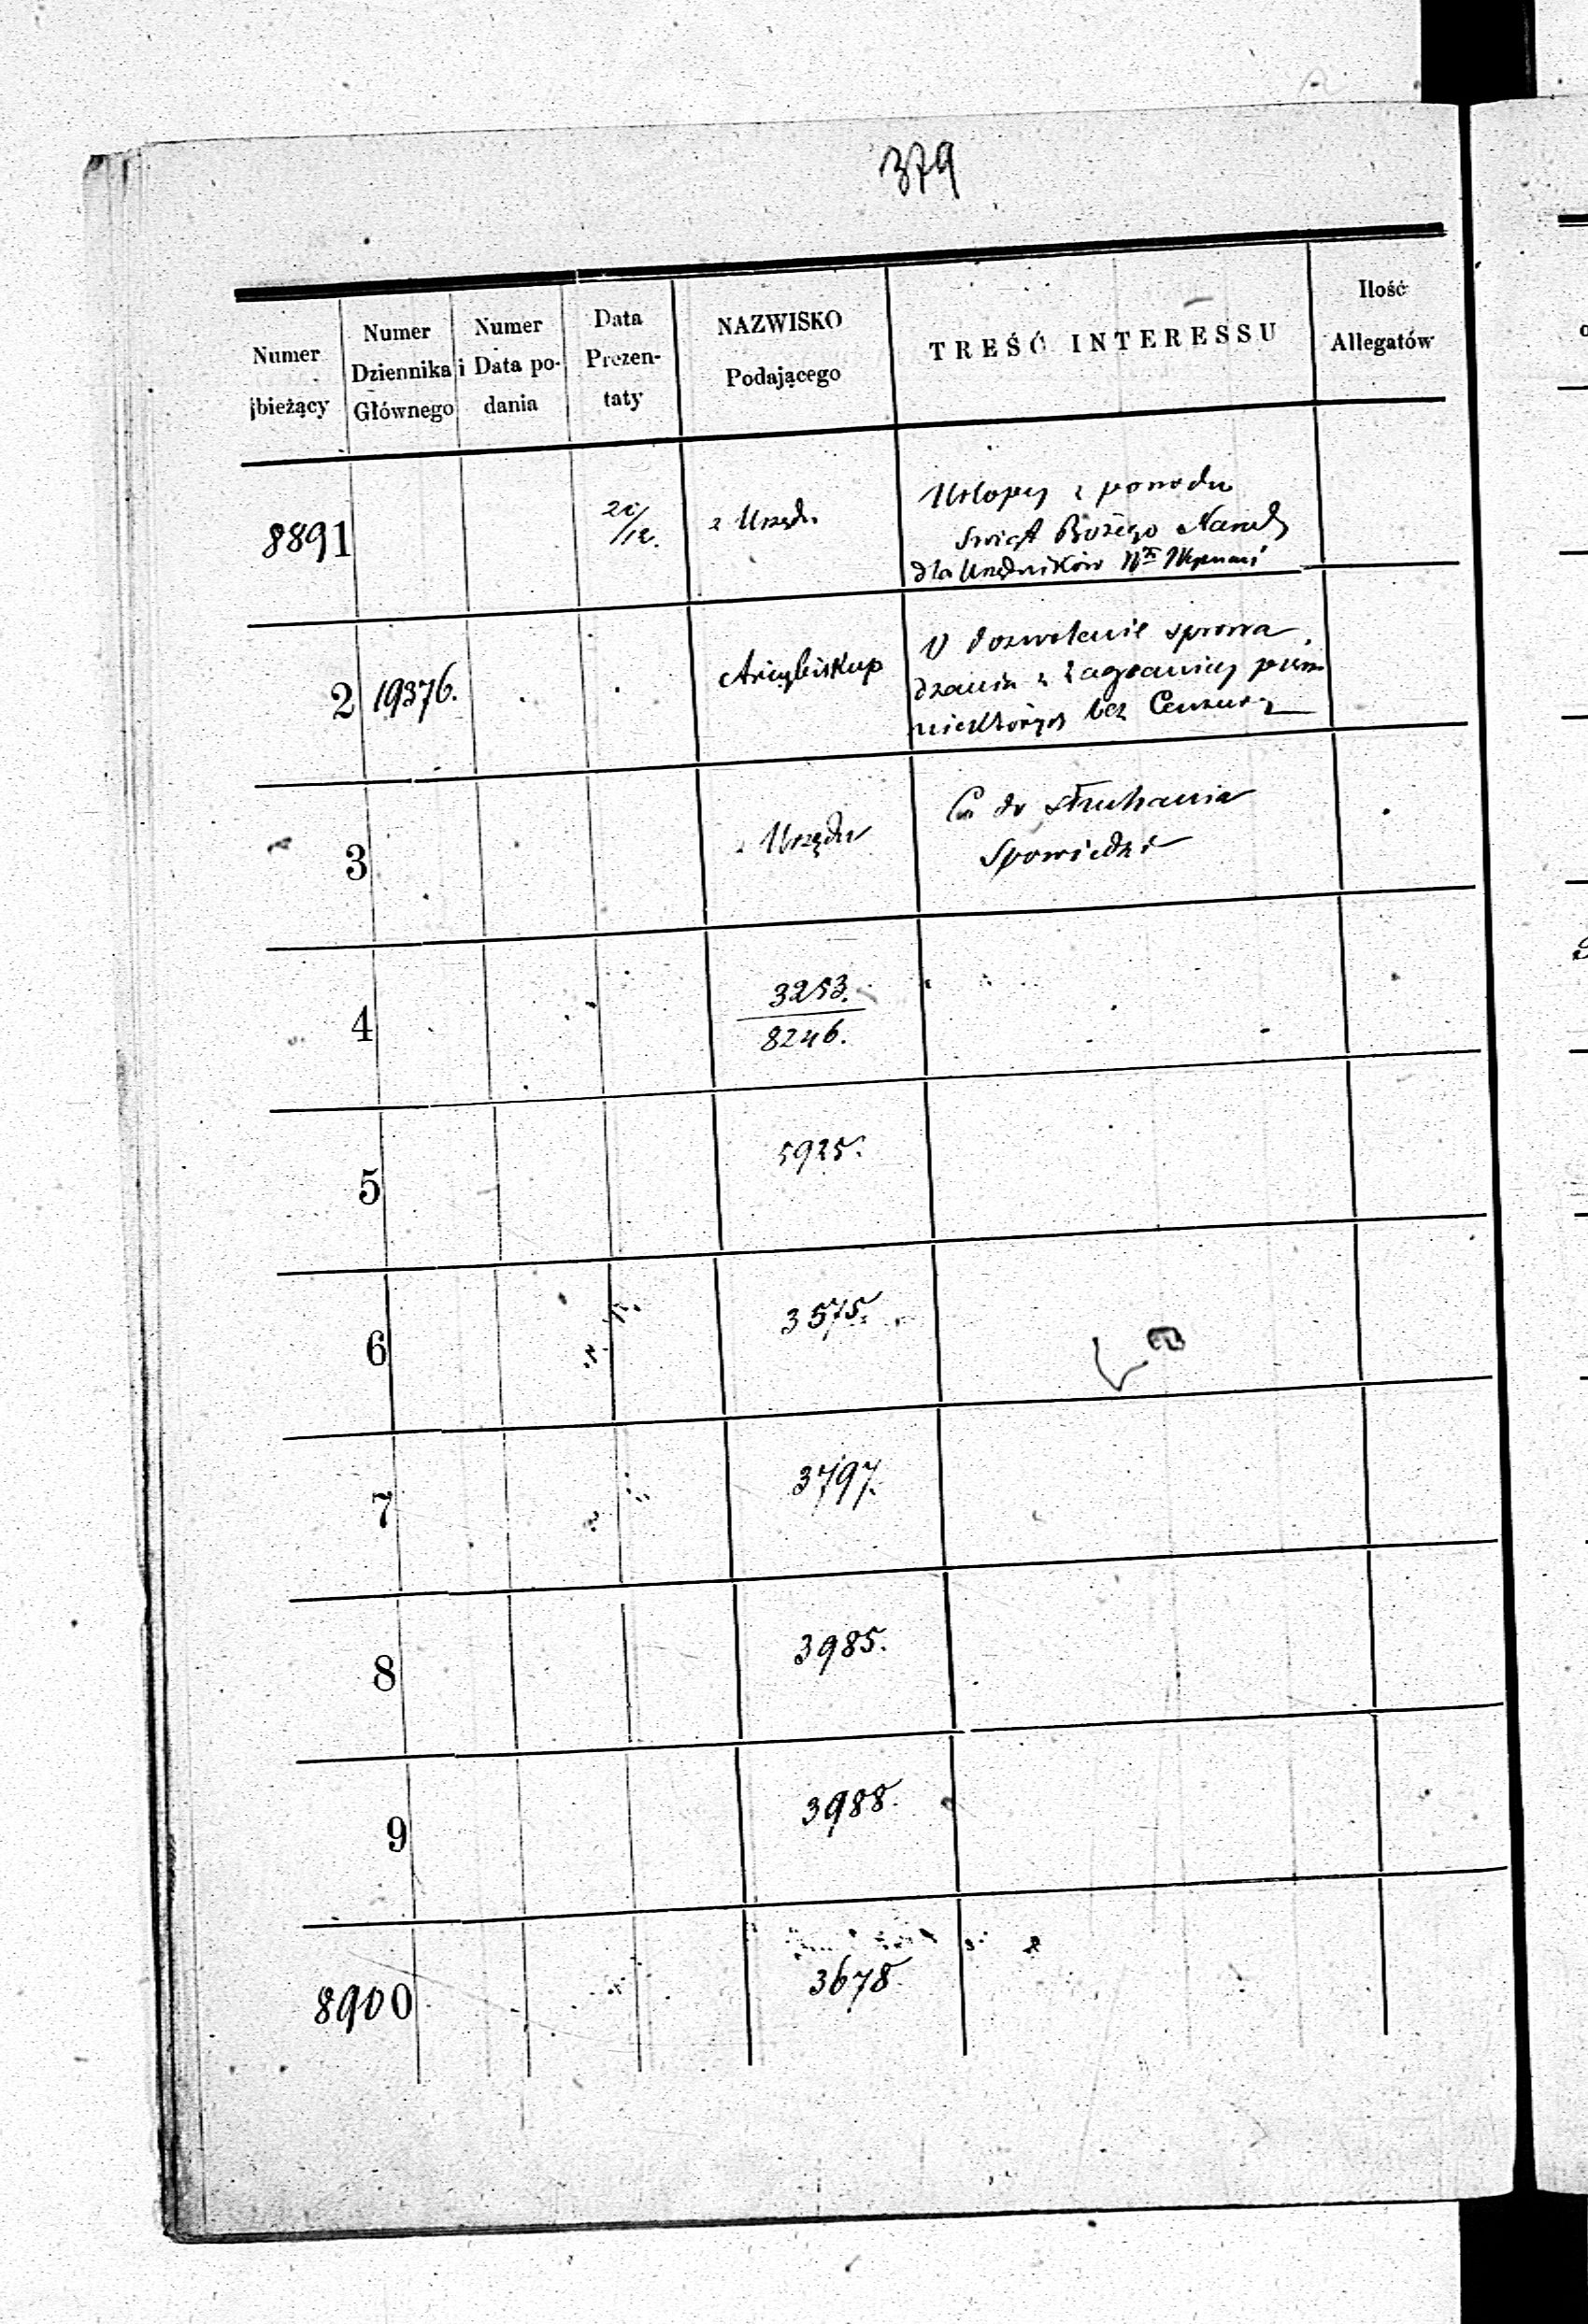 379
Numer bieżący
Numer Dziennika Głównego
Numer i Data podania
Data Prezentaty
NAZWISKO Podającego
TREŚĆ INTERESSU
Ilość Allegatów
8891 z Urzędu Urlopy z powodu
Świąt Bożego Narod
dla Urzędników
2 19376. Arcybiskup O dozwolenie sprowa
dzania z zagranicy pism
niektórych bez Cenzury
3 z Urzędu Co do słuchania
Spowiedzi
4 3253.
8246.
5 5925.
6 3575.
7 3797.
8 3985.
9 3988.
8900 3678